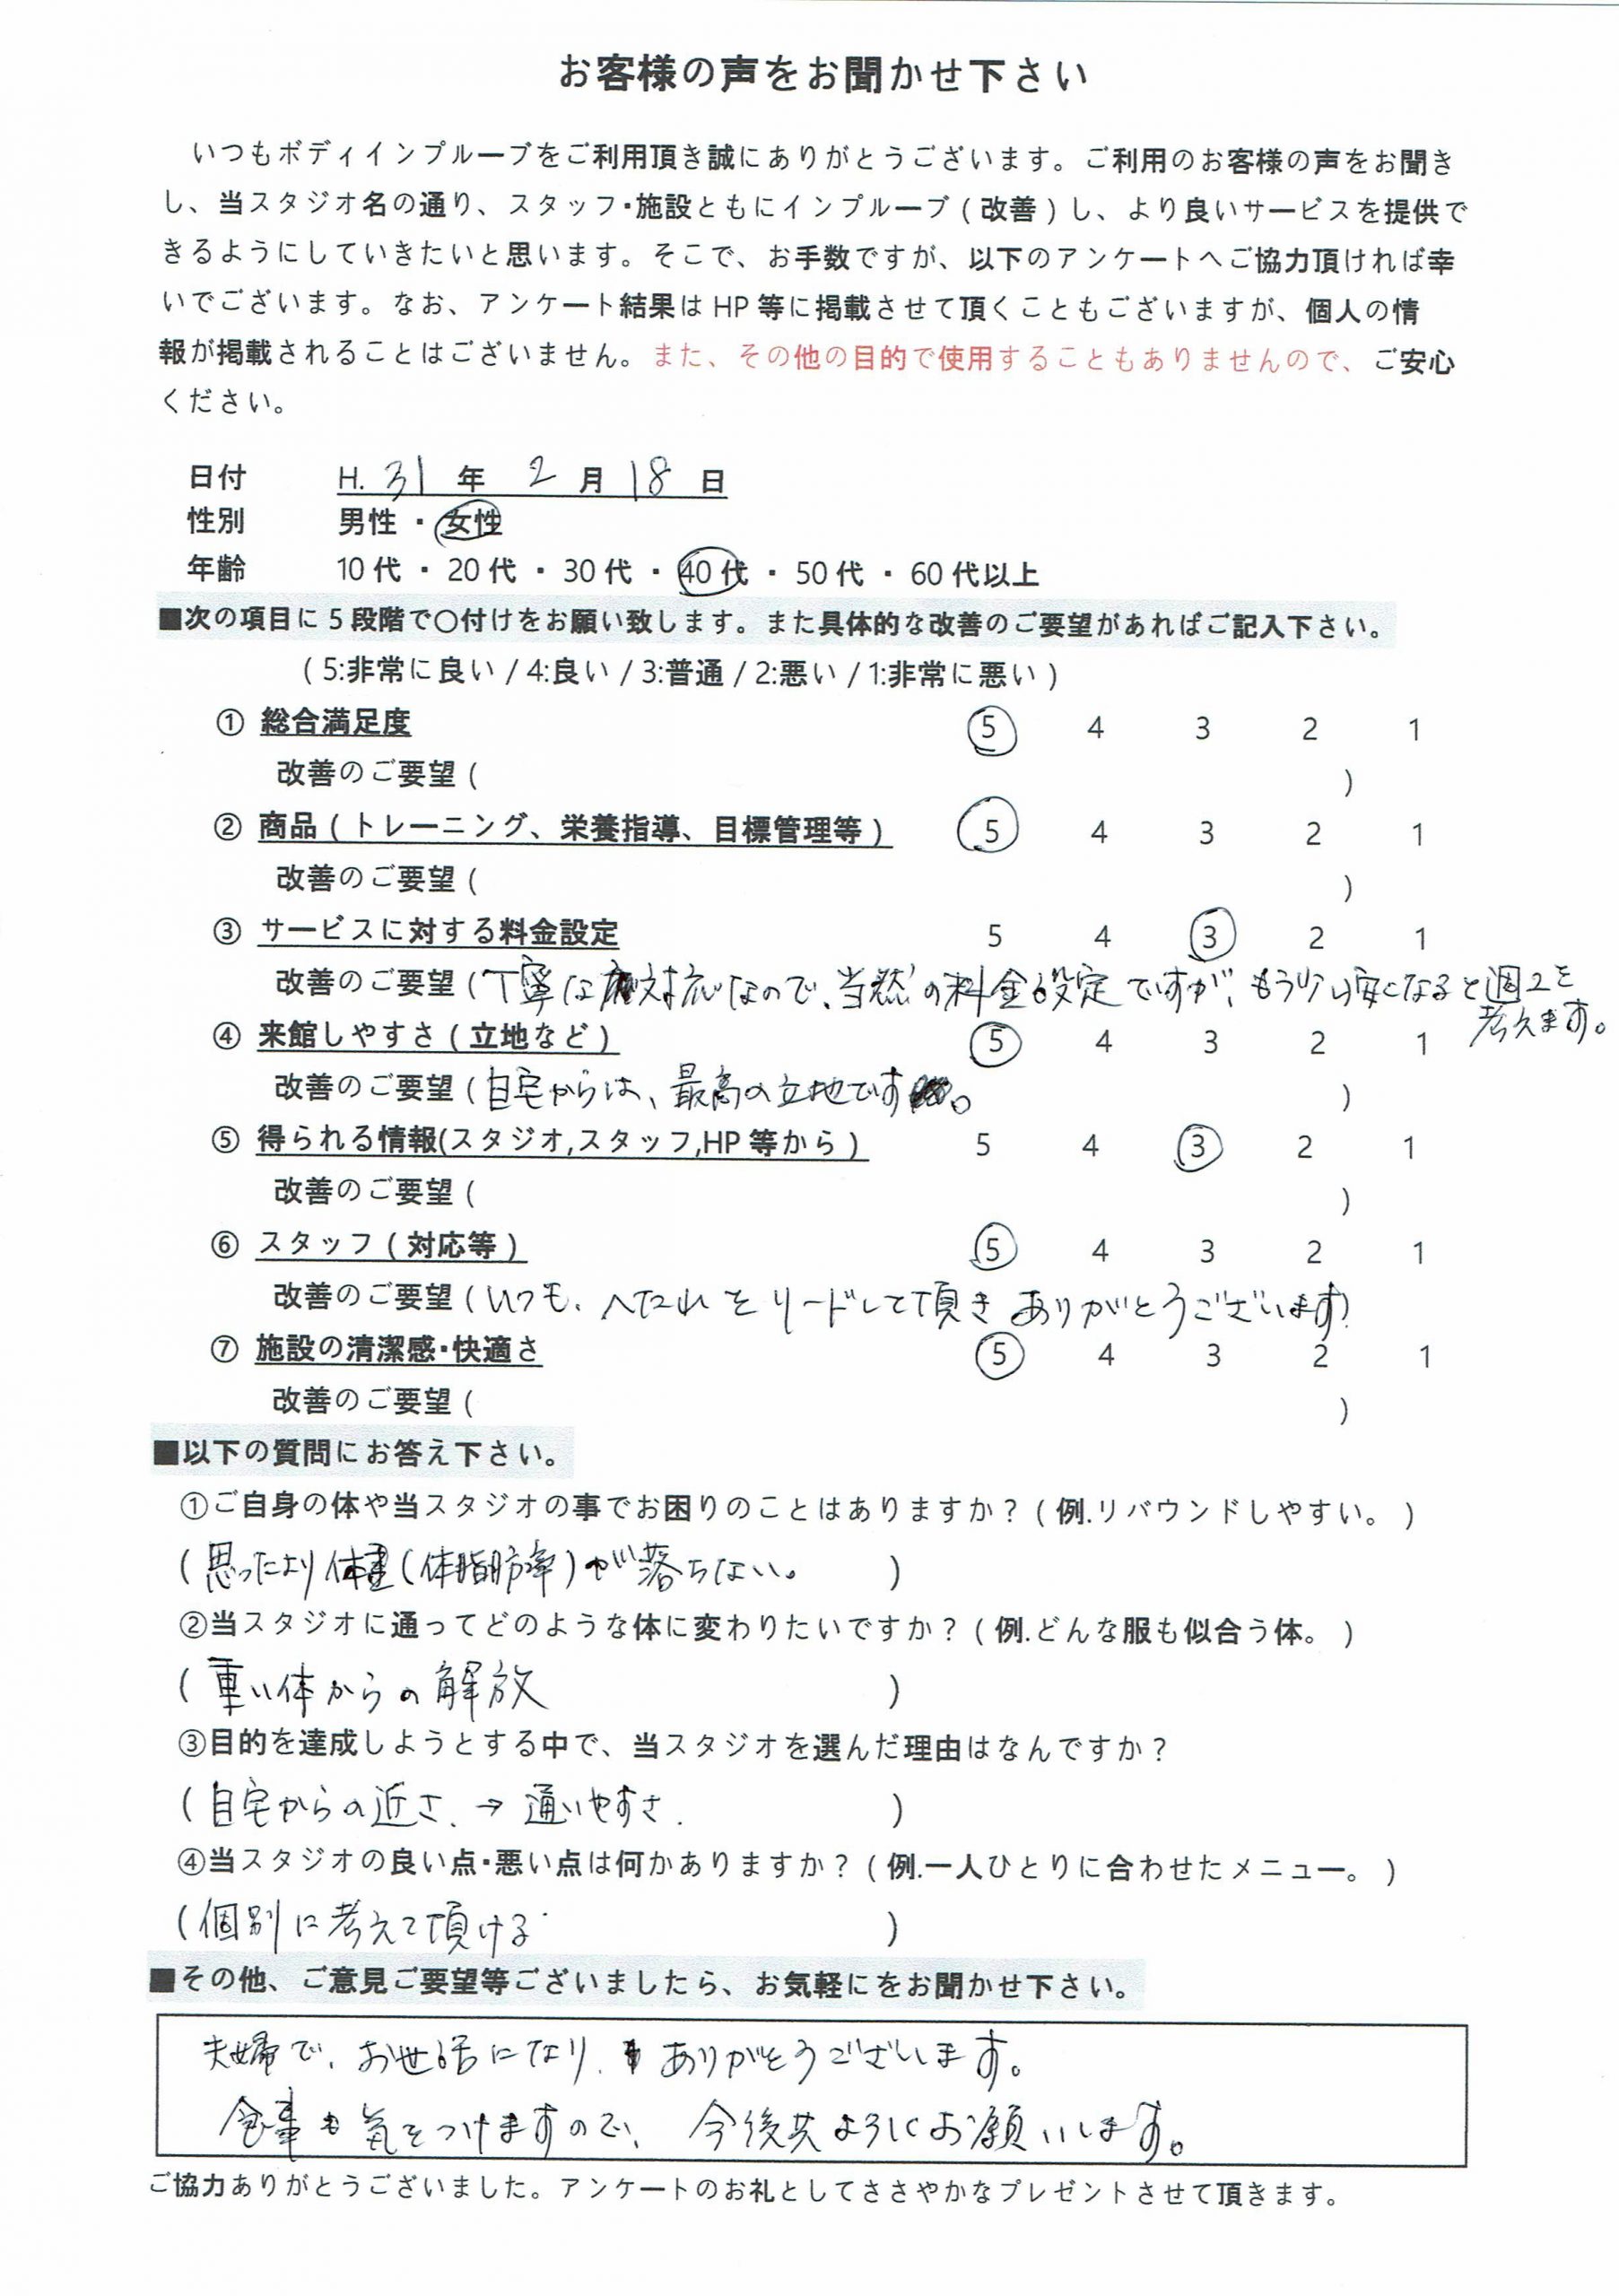 お客様の声をお聞かせ下さい
いつもボディインプルーブをご利用頂き誠にありがとうございます。ご利用のお客様の声をお聞き
し、当スタジオ名の通り、スタッフ・施設ともにインプルーブ(改善)し、より良いサービスを提供で
きるようにしていきたいと思います。そこで、お手数ですが、以下のアンケートへご協力頂ければ幸
いでございます。なお、アンケート結果はHP等に掲載させて頂くこともございますが、個人の情
報が掲載されることはございません。また、その他の目的で使用することもありませんので、ご安心
ください。
日付 H. 31 年 2 月 18 日
性別 男性・女性
年齢 10代・20代・30代・40代・50代・60代以上
■次の項目に5段階で○付けをお願い致します。また具体的な改善のご要望があればご記入下さい。
(5:非常に良い/4:良い/3:普通/2:悪い/1:非常に悪い)
① 総合満足度 5 4 3 2 1
改善のご要望( )
② 商品(トレーニング、栄養指導、目標管理等) 5 4 3 2 1
改善のご要望( )
③ サービスに対する料金設定 5 4 3 2 1
改善のご要望(丁寧な対応なので、当然の料金設定ですが、もう少し安くなると週2を
考えます。
④ 来館しやすさ(立地など) 5 4 3 2 1
改善のご要望(自宅からは、最高の立地です。)
⑤ 得られる情報(スタジオ,スタッフ,HP等から) 5 4 3 2 1
改善のご要望( )
⑥ スタッフ(対応等) 5 4 3 2 1
改善のご要望(いつも、へたれをリードして頂きありがとうございます)
⑦ 施設の清潔感・快適さ 5 4 3 2 1
改善のご要望( )
■以下の質問にお答え下さい。
①ご自身の体や当スタジオの事でお困りのことはありますか?(例.リバウンドしやすい。)
(思ったより体重(体脂肪率)が落ちない。)
②当スタジオに通ってどのような体に変わりたいですか?(例.どんな服も似合う体。)
(重い体からの解放)
③目的を達成しようとする中で、当スタジオを選んだ理由はなんですか?
(自宅からの近さ、→通いやすさ.)
④当スタジオの良い点・悪い点は何かありますか?(例.一人ひとりに合わせたメニュー。)
(個別に考えて頂ける)
■その他、ご意見ご要望等ございましたら、お気軽にをお聞かせ下さい。
夫婦で、お世話になり、ありがとうございます。
食事も気をつけますので、今後共よろしくお願いします。
ご協力ありがとうございました。アンケートのお礼としてささやかなプレゼントさせて頂きます。